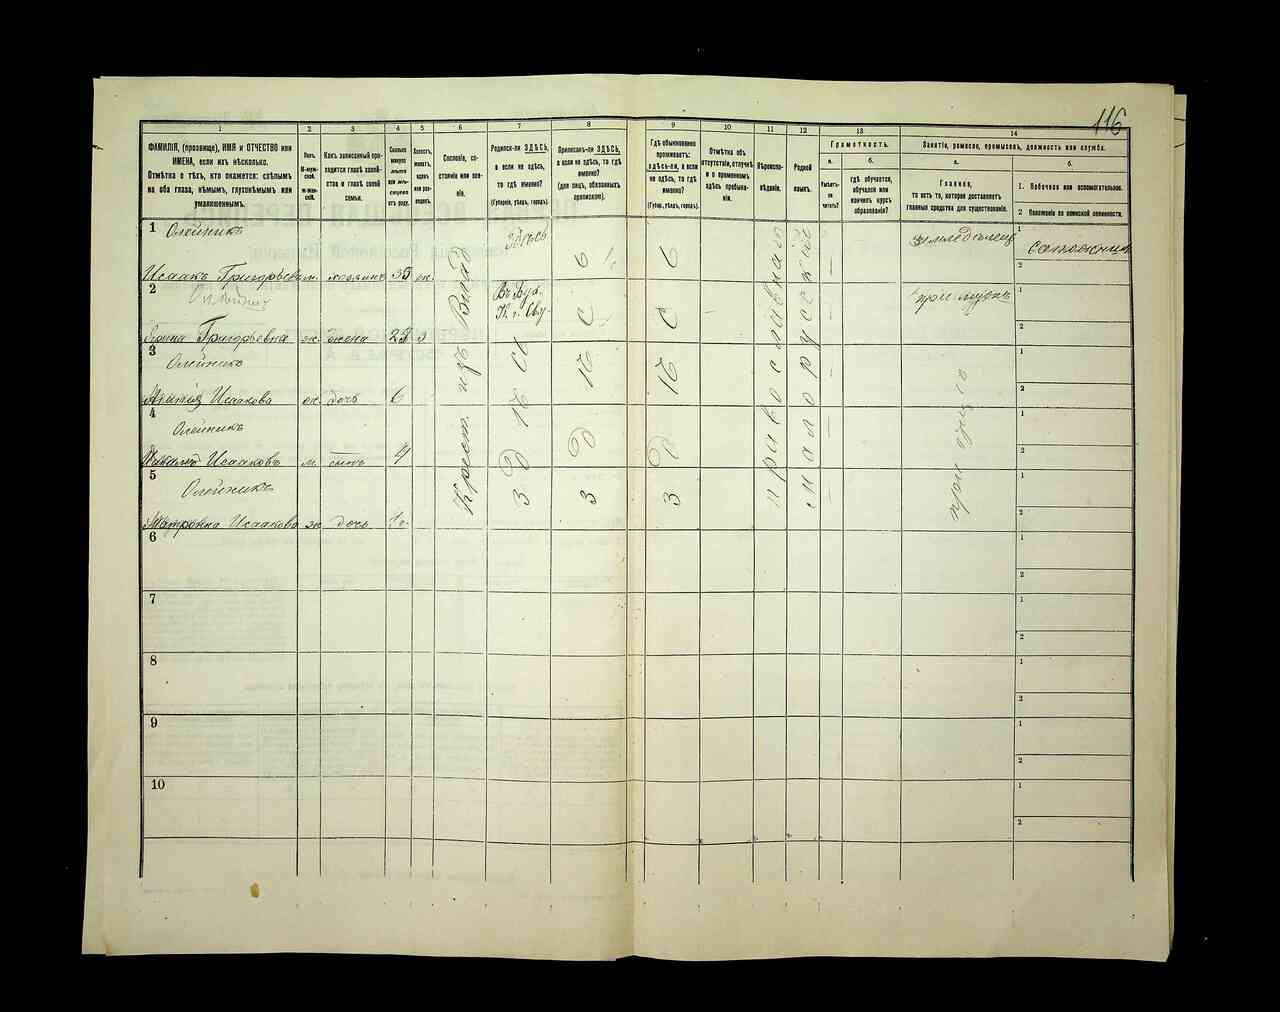 116
1 2 3 4 5 6 7 8 9 10 11 12 13 14
ФАМИЛІЯ, (прозвище), ИМЯ и ОТЧЕСТВО или
ИМЕНА, если ихъ нѣсколько.
Отмѣтка о тѣхъ, кто окажется: слѣпымъ
на оба глаза, нѣмымъ, глухонѣмымъ или
умалишеннымъ.
Полъ.
М-муж-
ской.
Ж-жен-
скій.
Какъ записанный при-
ходится главѣ хозяй-
ства и главѣ своей
семьи.
Сколько
минуло
лѣтъ
или мѣ-
сяцевъ
отъ роду.
Холостъ,
женатъ,
вдовъ
или раз-
веденъ.
Сословіе, со-
стояніе или зва-
ніе.
Родился-ли ЗДѢСЬ,
а если не здѣсь,
то гдѣ именно?
(Губернія, уѣздъ, городъ).
Приписанъ-ли ЗДѢСЬ,
а если не здѣсь, то гдѣ
именно?
(для лицъ, обязанныхъ
припискою).
Гдѣ обыкновенно
проживаетъ:
здѣсь-ли, а если
не здѣсь, то гдѣ
именно?
(Губер., уѣздъ, городъ).
Отмѣтка объ
отсутствіи, отлучкѣ
и о временномъ
здѣсь пребыва-
ніи.
Вѣроиспо-
вѣданіе.
Родной
языкъ.
Грамотность.
а.
Умѣетъ-
ли
читать?
б.
гдѣ обучается,
обучался или
кончилъ курсъ
образованія?
Занятіе, ремесло, промыселъ, должность или служба.
а.
Главное,
то есть то, которое доставляетъ
главныя средства для существованія.
б.
1. Побочное или вспомогательное.
2 Положеніе по воинской повинности.
1 Олейникъ
Исаакъ Григорьевъ м. хозяинъ 35 ж. Здѣсь земледѣлецъ сапожникъ
2 Олейникъ
Григорьевна ж. жена 3 при мужѣ
3 Олейникъ
Исаакова ж. дочь 6
4 Олейникъ
Исааковъ м. сынъ 4
5 Олейникъ
Матрона Исаакова ж. дочь
Крест. изъ
здѣсь
здѣсь
здѣсь
православный
малорусскій
при отцѣ
6
7
8
9
10
1
2
1
2
1
2
1
2
1
2
1
2
1
2
1
2
1
2
1
2